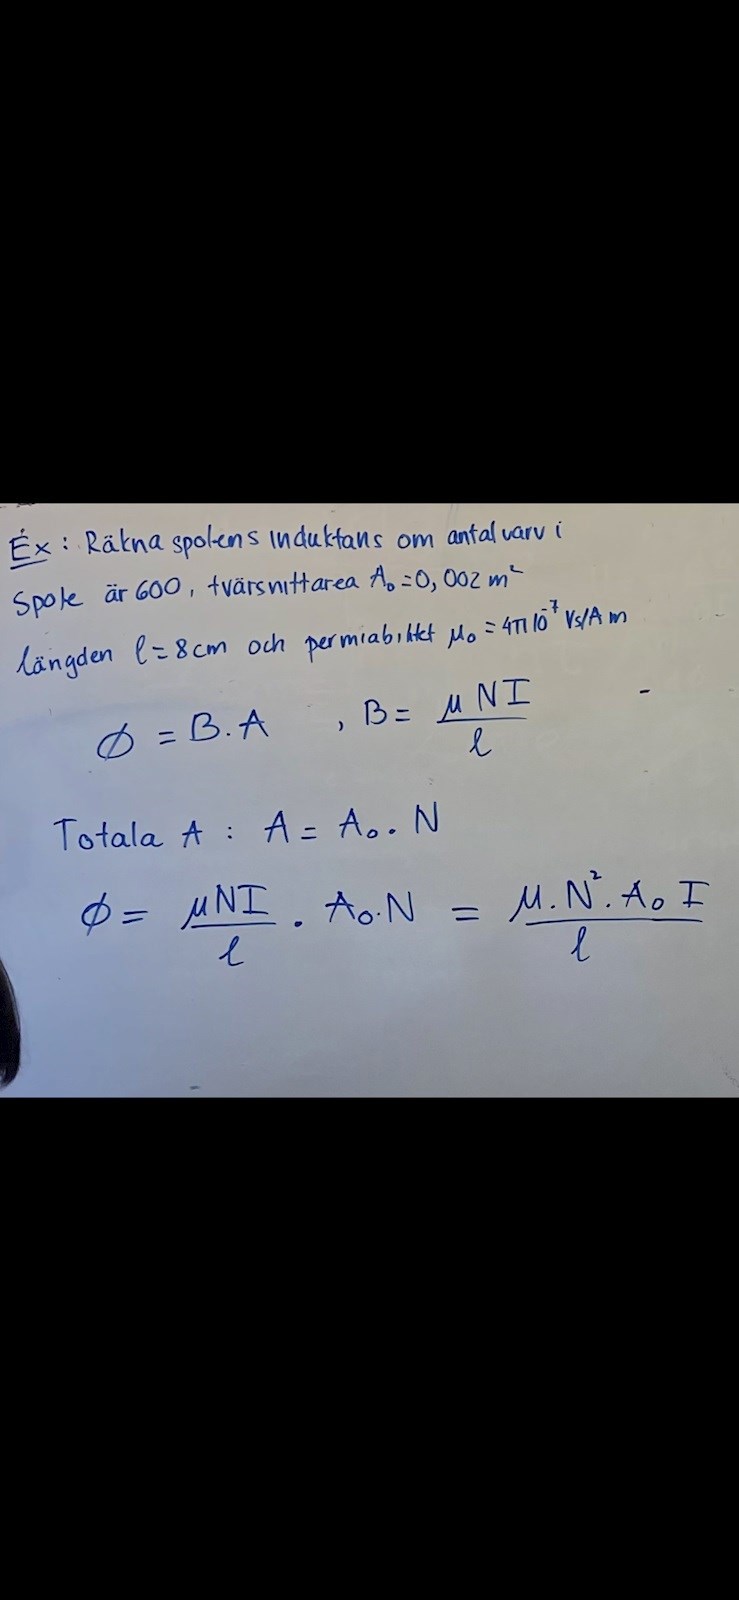 Ex: Räkna spolens induktans om antal varv i
Spole är 600, tvärsnittarea A₀ = 0,002 m²
längden l = 8 cm och permiabilitet μ₀ = 4π10⁻⁷ Vs/A m
Ø = B.A , B = μNI/l
Totala A : A = A₀. N
ø = μNI/l . A₀.N = μ.N².A₀ I/l